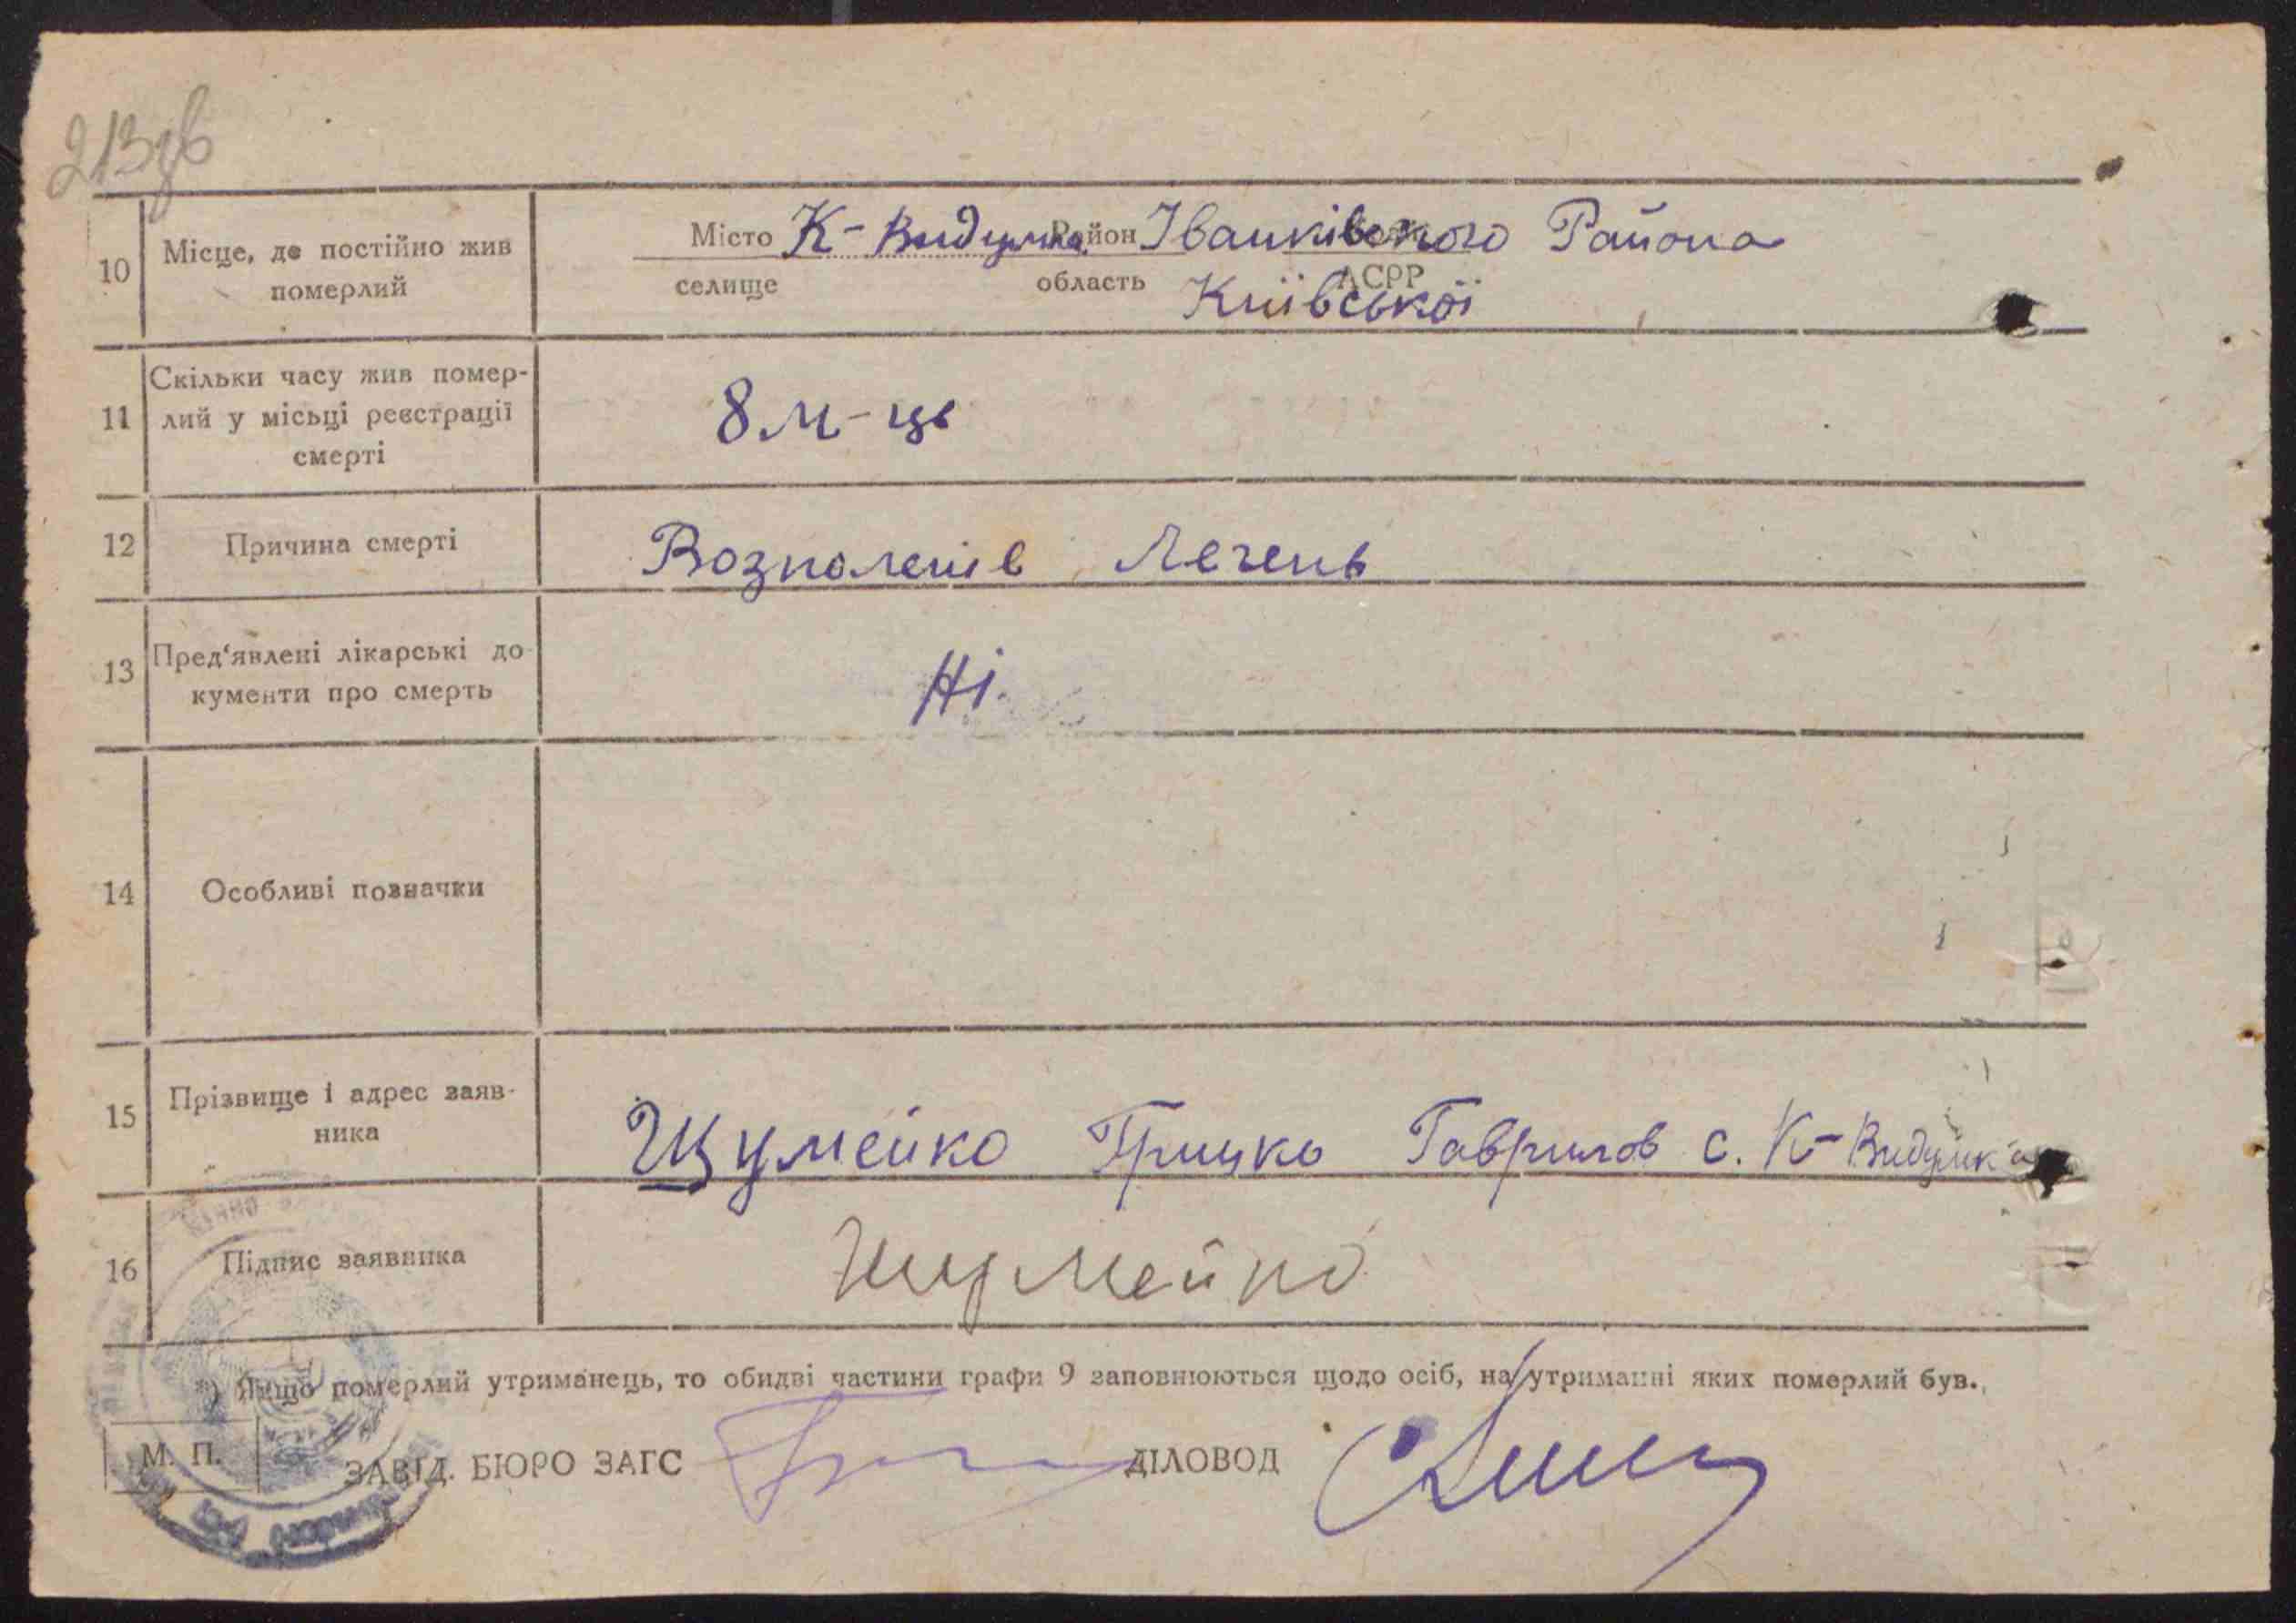 213зв
10
Місце, де постійно жив
померлий
Місто К-Видумка Район Іванківского Района
селище область Київської АСРР
11
Скільки часу жив помер-
лий у місьці реєстрації
смерті
8 м-ць
12
Причина смерті
Возполеніє Легень
13
Пред‘явлені лікарські до-
кументи про смерть
Ні.
14
Особливі позначки
15
Прізвище і адрес заяв-
ника
Шумейко Грицко Гаврилов с. К-Видумка
16
Підпис заявника
Шумейко
*) Якщо померлий утриманець, то обидві частини графи 9 заповнюються щодо осіб, на утриманні яких померлий був.
М. П.
ЗАВІД. БЮРО ЗАГС ДІЛОВОД